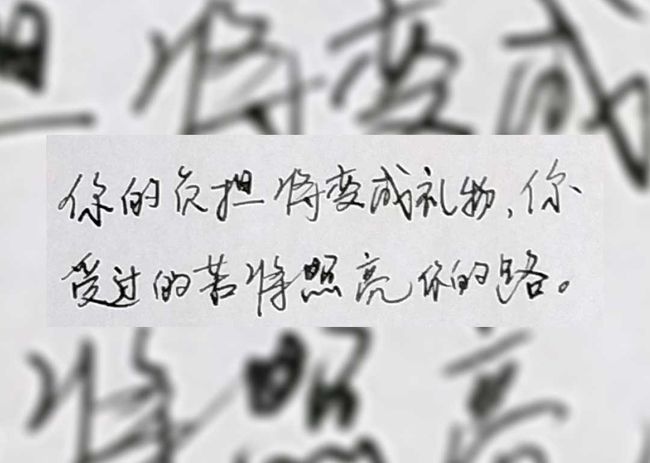 你的负担将变成礼物、你
受过的苦将照亮你的路。